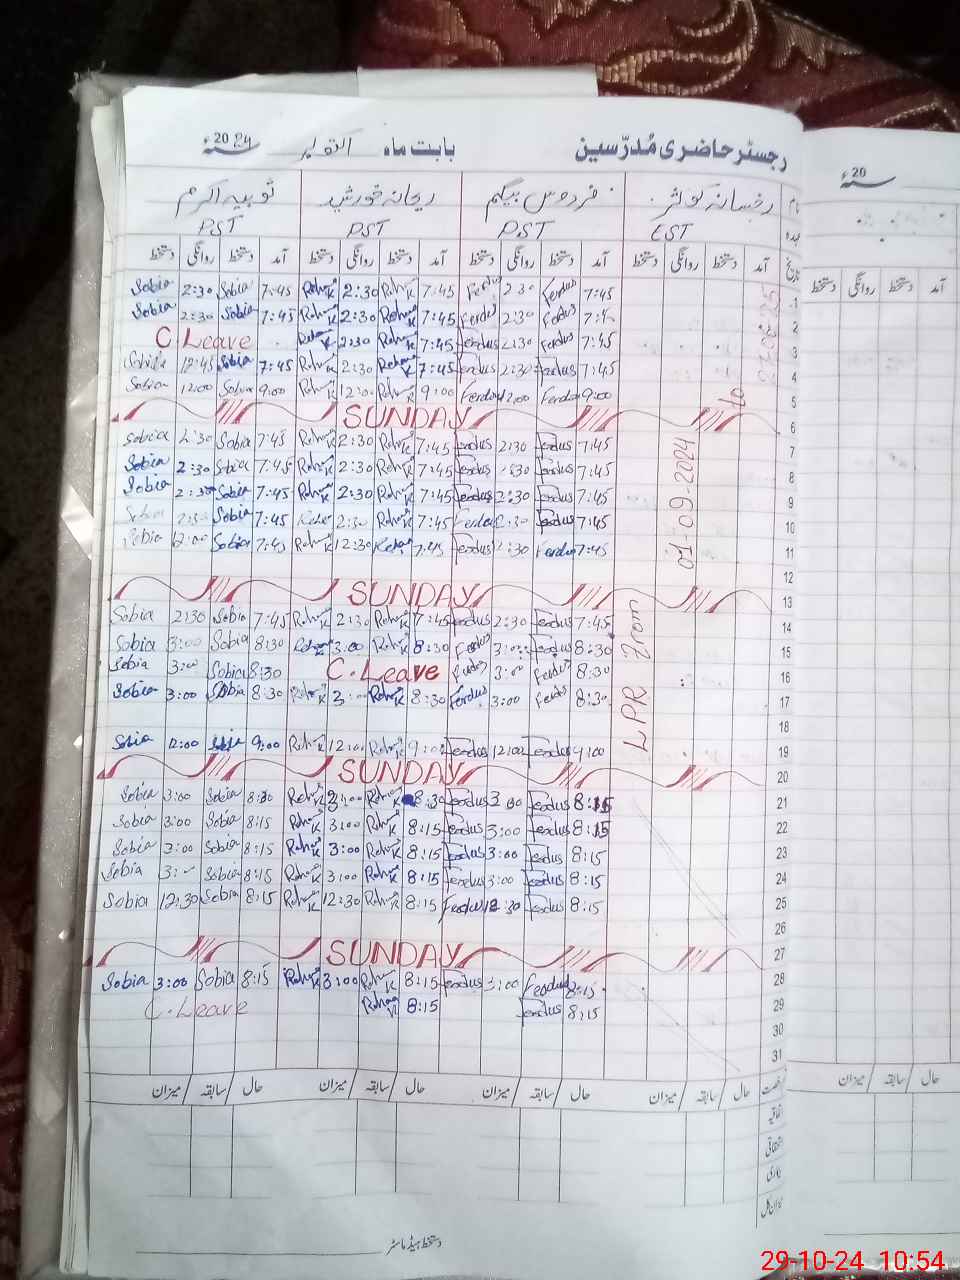 رجسٹر حاضری مُدرّسین بابت ماہ اکتوبر 2024ء
نام رخسانہ کوثر فردوس بیگم ریحانہ خورشید ثوبیہ اکرم
عہدہ EST PST PST PST
تاریخ آمد دستخط روانگی دستخط آمد دستخط روانگی دستخط آمد دستخط روانگی دستخط آمد دستخط روانگی دستخط
LPR From 01-09-2024 To
Sobia 2:30 Sobia 7:45 Rehana K 2:30 Rehana K 7:45 Ferdus 2:30 Ferdus 7:45 1
Sobia 2:30 Sobia 7:45 Rehana K 2:30 Rehana K 7:45 Ferdus 2:30 Ferdus 7:45 2
C. Leave Rehana K 2:30 Rehana K 7:45 Ferdus 2:30 Ferdus 7:45 3
Sobia 12:45 Sobia 7:45 Rehana K 2:30 Rehana K 7:45 Ferdus 2:30 Ferdus 7:45 4
Sobia 12:00 Sobia 9:00 Rehana K 12:00 Rehana K 9:00 Ferdus 12:00 Ferdus 9:00 5
SUNDAY 6
Sobia 2:30 Sobia 7:45 Rehana K 2:30 Rehana K 7:45 Ferdus 2:30 Ferdus 7:45 7
Sobia 2:30 Sobia 7:45 Rehana K 2:30 Rehana K 7:45 Ferdus 2:30 Ferdus 7:45 8
Sobia 2:30 Sobia 7:45 Rehana K 2:30 Rehana K 7:45 Ferdus 2:30 Ferdus 7:45 9
Sobia 2:30 Sobia 7:45 Rehana K 2:30 Rehana K 7:45 Ferdus 2:30 Ferdus 7:45 10
Sobia 12:00 Sobia 7:45 Rehana K 12:30 Rehana 7:45 Ferdus 12:30 Ferdus 7:45 11
12
SUNDAY 13
Sobia 2:30 Sobia 7:45 Rehana K 2:30 Rehana K 7:45 Ferdus 2:30 Ferdus 7:45 14
Sobia 3:00 Sobia 8:30 Rehana K 3:00 Rehana K 8:30 Ferdus 3:00 Ferdus 8:30 15
Sobia 3:00 Sobia 8:30 C. Leave Ferdus 3:00 Ferdus 8:30 16
Sobia 3:00 Sobia 8:30 Rehana K 3:00 Rehana K 8:30 Ferdus 3:00 Ferdus 8:30 17
18
Sobia 12:00 Sobia 9:00 Rehana K 12:00 Rehana K 9:00 Ferdus 12:00 Ferdus 9:00 19
SUNDAY 20
Sobia 3:00 Sobia 8:30 Rehana K 3:00 Rehana K 8:30 Ferdus 3:00 Ferdus 8:15 21
Sobia 3:00 Sobia 8:15 Rehana K 3:00 Rehana K 8:15 Ferdus 3:00 Ferdus 8:15 22
Sobia 3:00 Sobia 8:15 Rehana K 3:00 Rehana K 8:15 Ferdus 3:00 Ferdus 8:15 23
Sobia 3:00 Sobia 8:15 Rehana K 3:00 Rehana K 8:15 Ferdus 3:00 Ferdus 8:15 24
Sobia 12:30 Sobia 8:15 Rehana K 12:30 Rehana K 8:15 Ferdus 12:30 Ferdus 8:15 25
26
SUNDAY 27
Sobia 3:00 Sobia 8:15 Rehana K 3:00 Rehana K 8:15 Ferdus 3:00 Ferdus 8:15 28
C. Leave Rehana K 8:15 Ferdus 8:15 29
30
31
رخصت حال / سابقہ / میزان حال / سابقہ / میزان حال / سابقہ / میزان حال / سابقہ / میزان
اتفاقیہ
استحقاقی
بیماری
میزان کل
دستخط ہیڈ ماسٹر
20 ء
آمد دستخط روانگی دستخط
حال / سابقہ / میزان
29-10-24 10:54